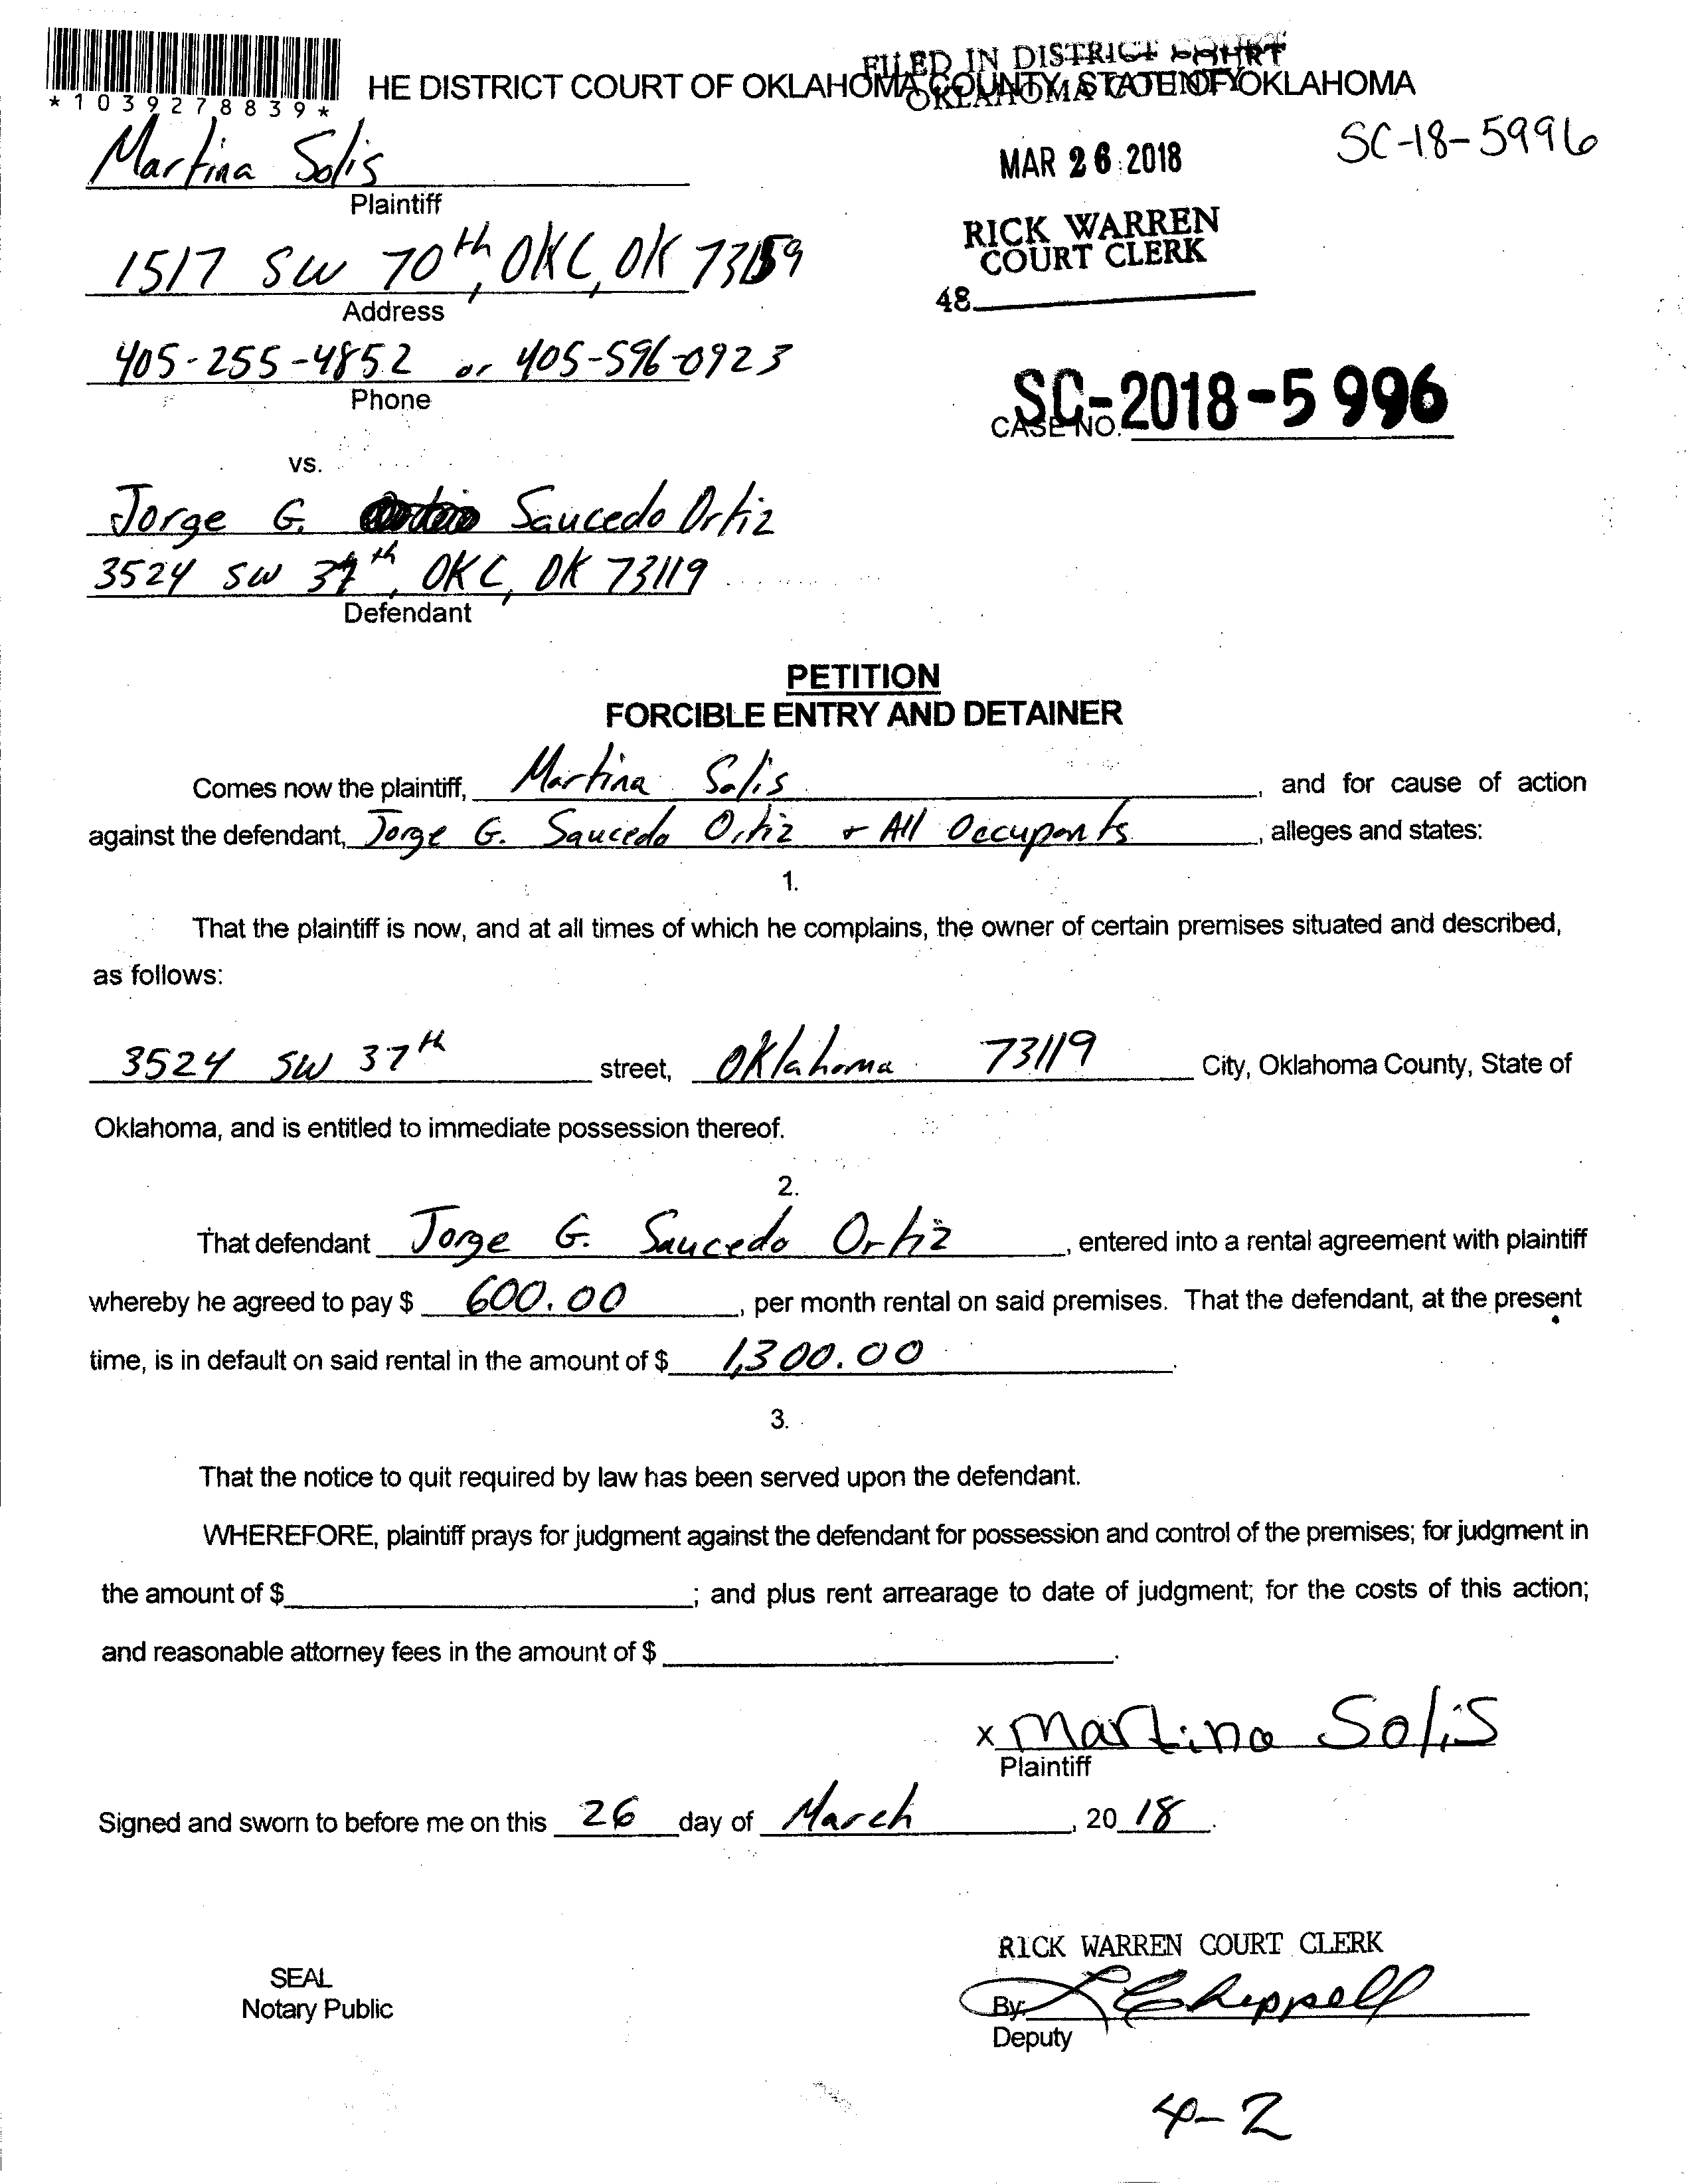 *1039278839*
HE DISTRICT COURT OF OKLAHOMA COUNTY, STATE OF OKLAHOMA
FILED IN DISTRICT COURT
OKLAHOMA COUNTY
Martina Solis
Plaintiff
MAR 26 2018
SC-18-5996
1517 SW 70th, OKC, OK 73159
Address
RICK WARREN
COURT CLERK
48
405-255-4852 or 405-596-0923
Phone
CASE NO. SC-2018-5996
vs.
Jorge G. Saucedo Ortiz
3524 SW 37th, OKC, OK 73119
Defendant
PETITION
FORCIBLE ENTRY AND DETAINER
Comes now the plaintiff, Martina Solis, and for cause of action
against the defendant, Jorge G. Saucedo Ortiz + All Occupants, alleges and states:
1.
That the plaintiff is now, and at all times of which he complains, the owner of certain premises situated and described,
as follows:
3524 SW 37th street, Oklahoma 73119 City, Oklahoma County, State of
Oklahoma, and is entitled to immediate possession thereof.
2.
That defendant Jorge G. Saucedo Ortiz, entered into a rental agreement with plaintiff
whereby he agreed to pay $ 600.00, per month rental on said premises. That the defendant, at the present
time, is in default on said rental in the amount of $ 1,300.00.
3.
That the notice to quit required by law has been served upon the defendant.
WHEREFORE, plaintiff prays for judgment against the defendant for possession and control of the premises; for judgment in
the amount of $ ; and plus rent arrearage to date of judgment; for the costs of this action;
and reasonable attorney fees in the amount of $ .
x Martina Solis
Plaintiff
Signed and sworn to before me on this 26 day of March, 2018.
RICK WARREN COURT CLERK
SEAL
Notary Public
By: L Cheppell
Deputy
4-2